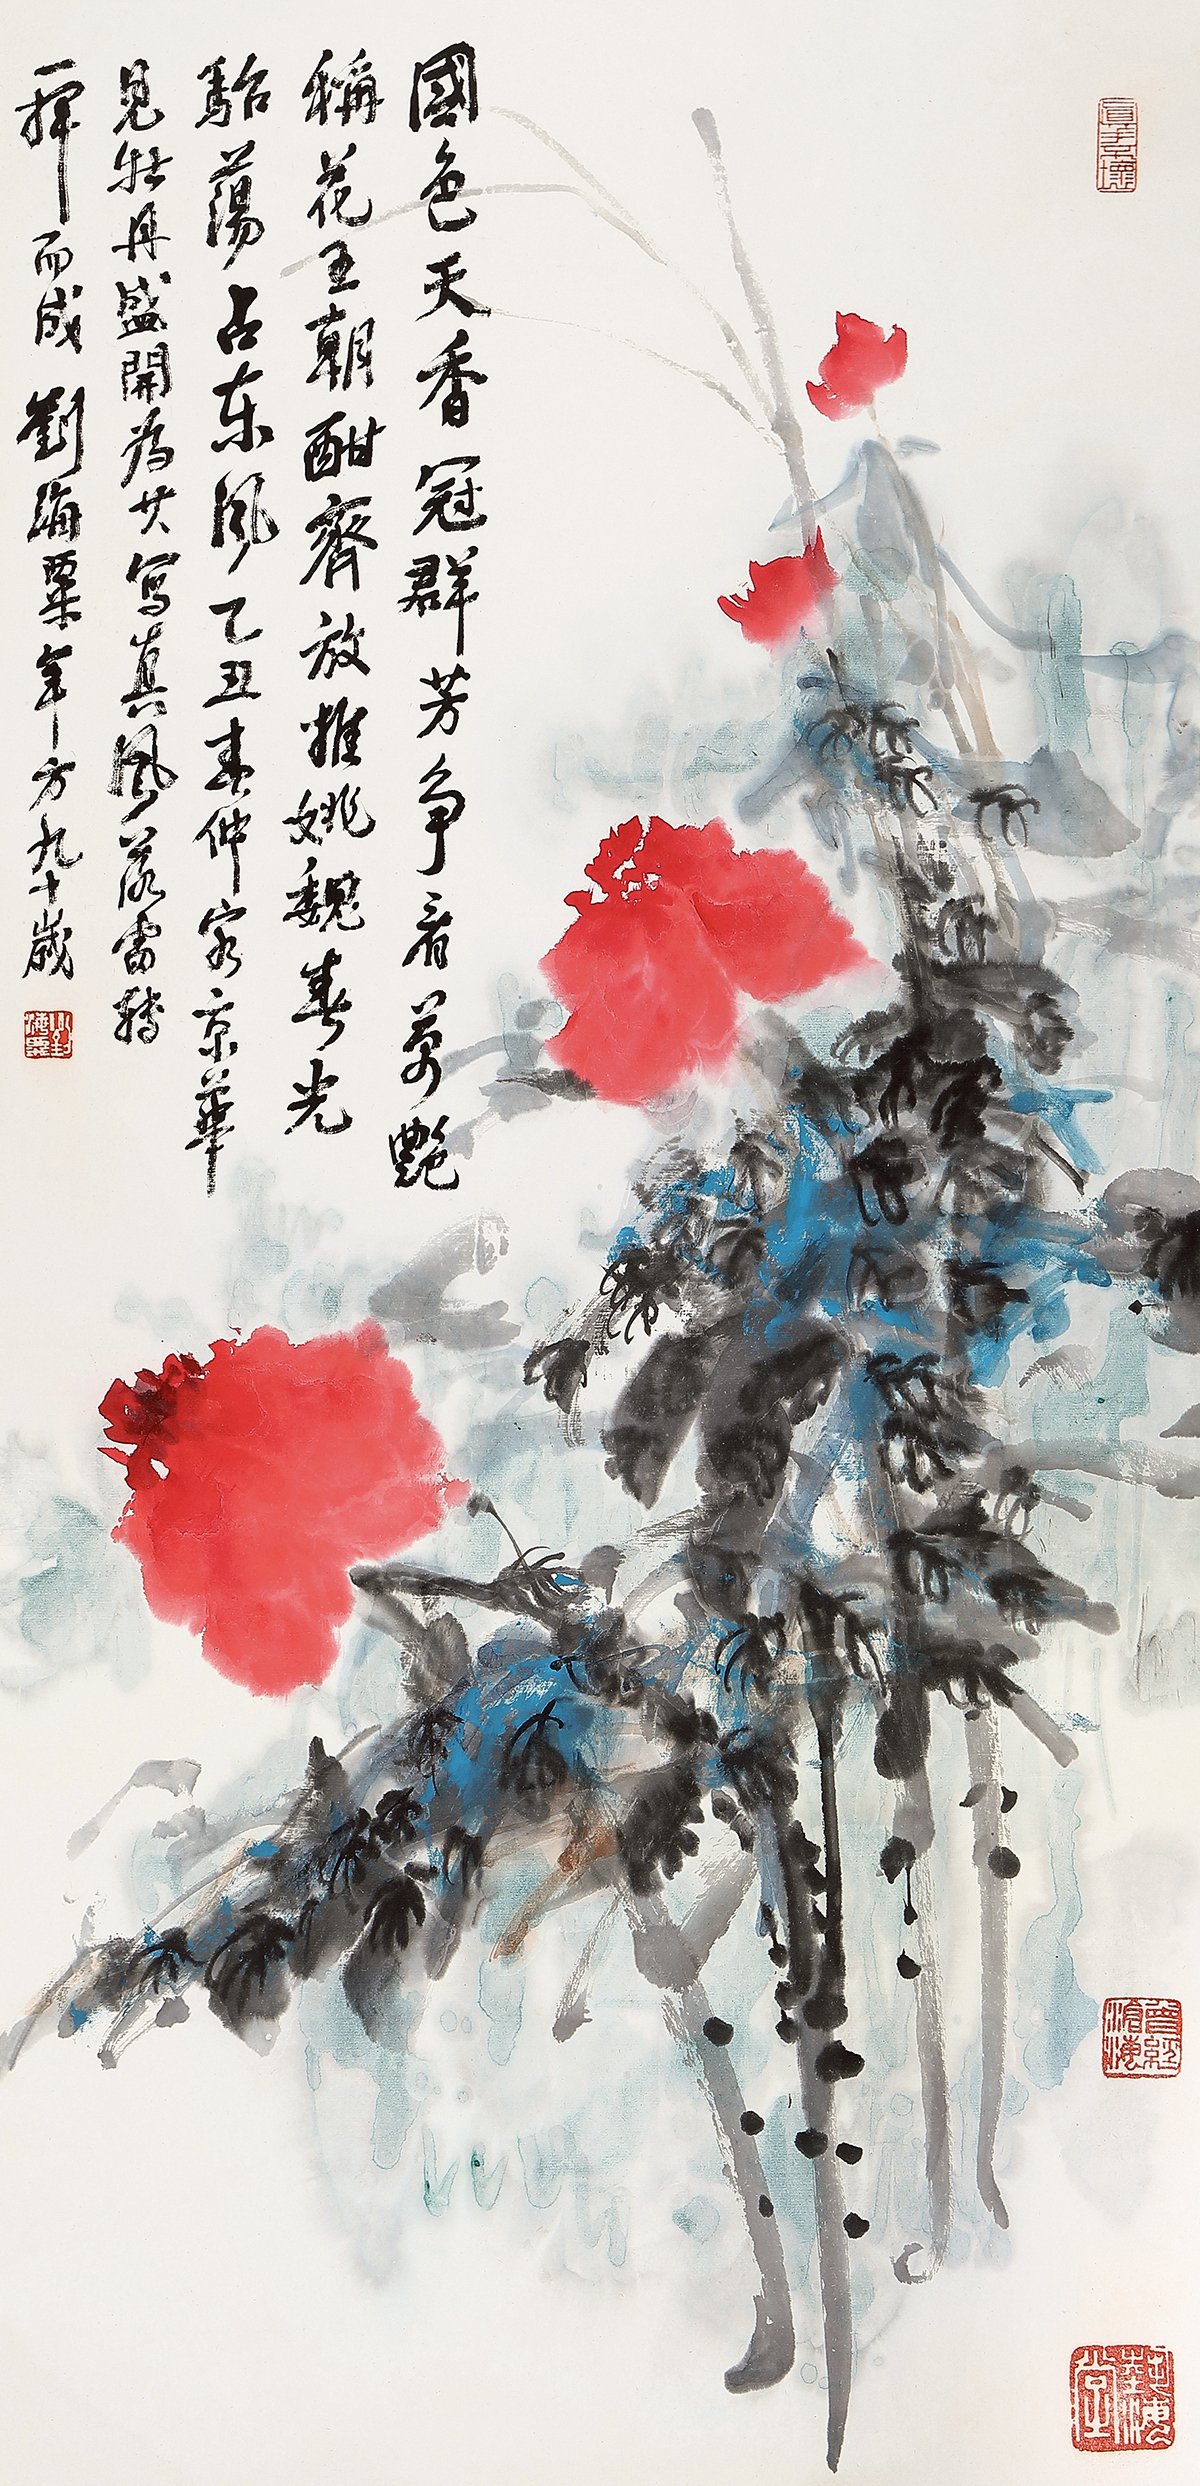 國色天香冠群芳爭看萬艷
稱花王朝酣齊放推姚魏春光
駘蕩占东風乙丑春仲客京華
見牡丹盛開為其寫真風落雷轉
一揮而成劉海粟年方九十歲
曾經滄海
藝海堂